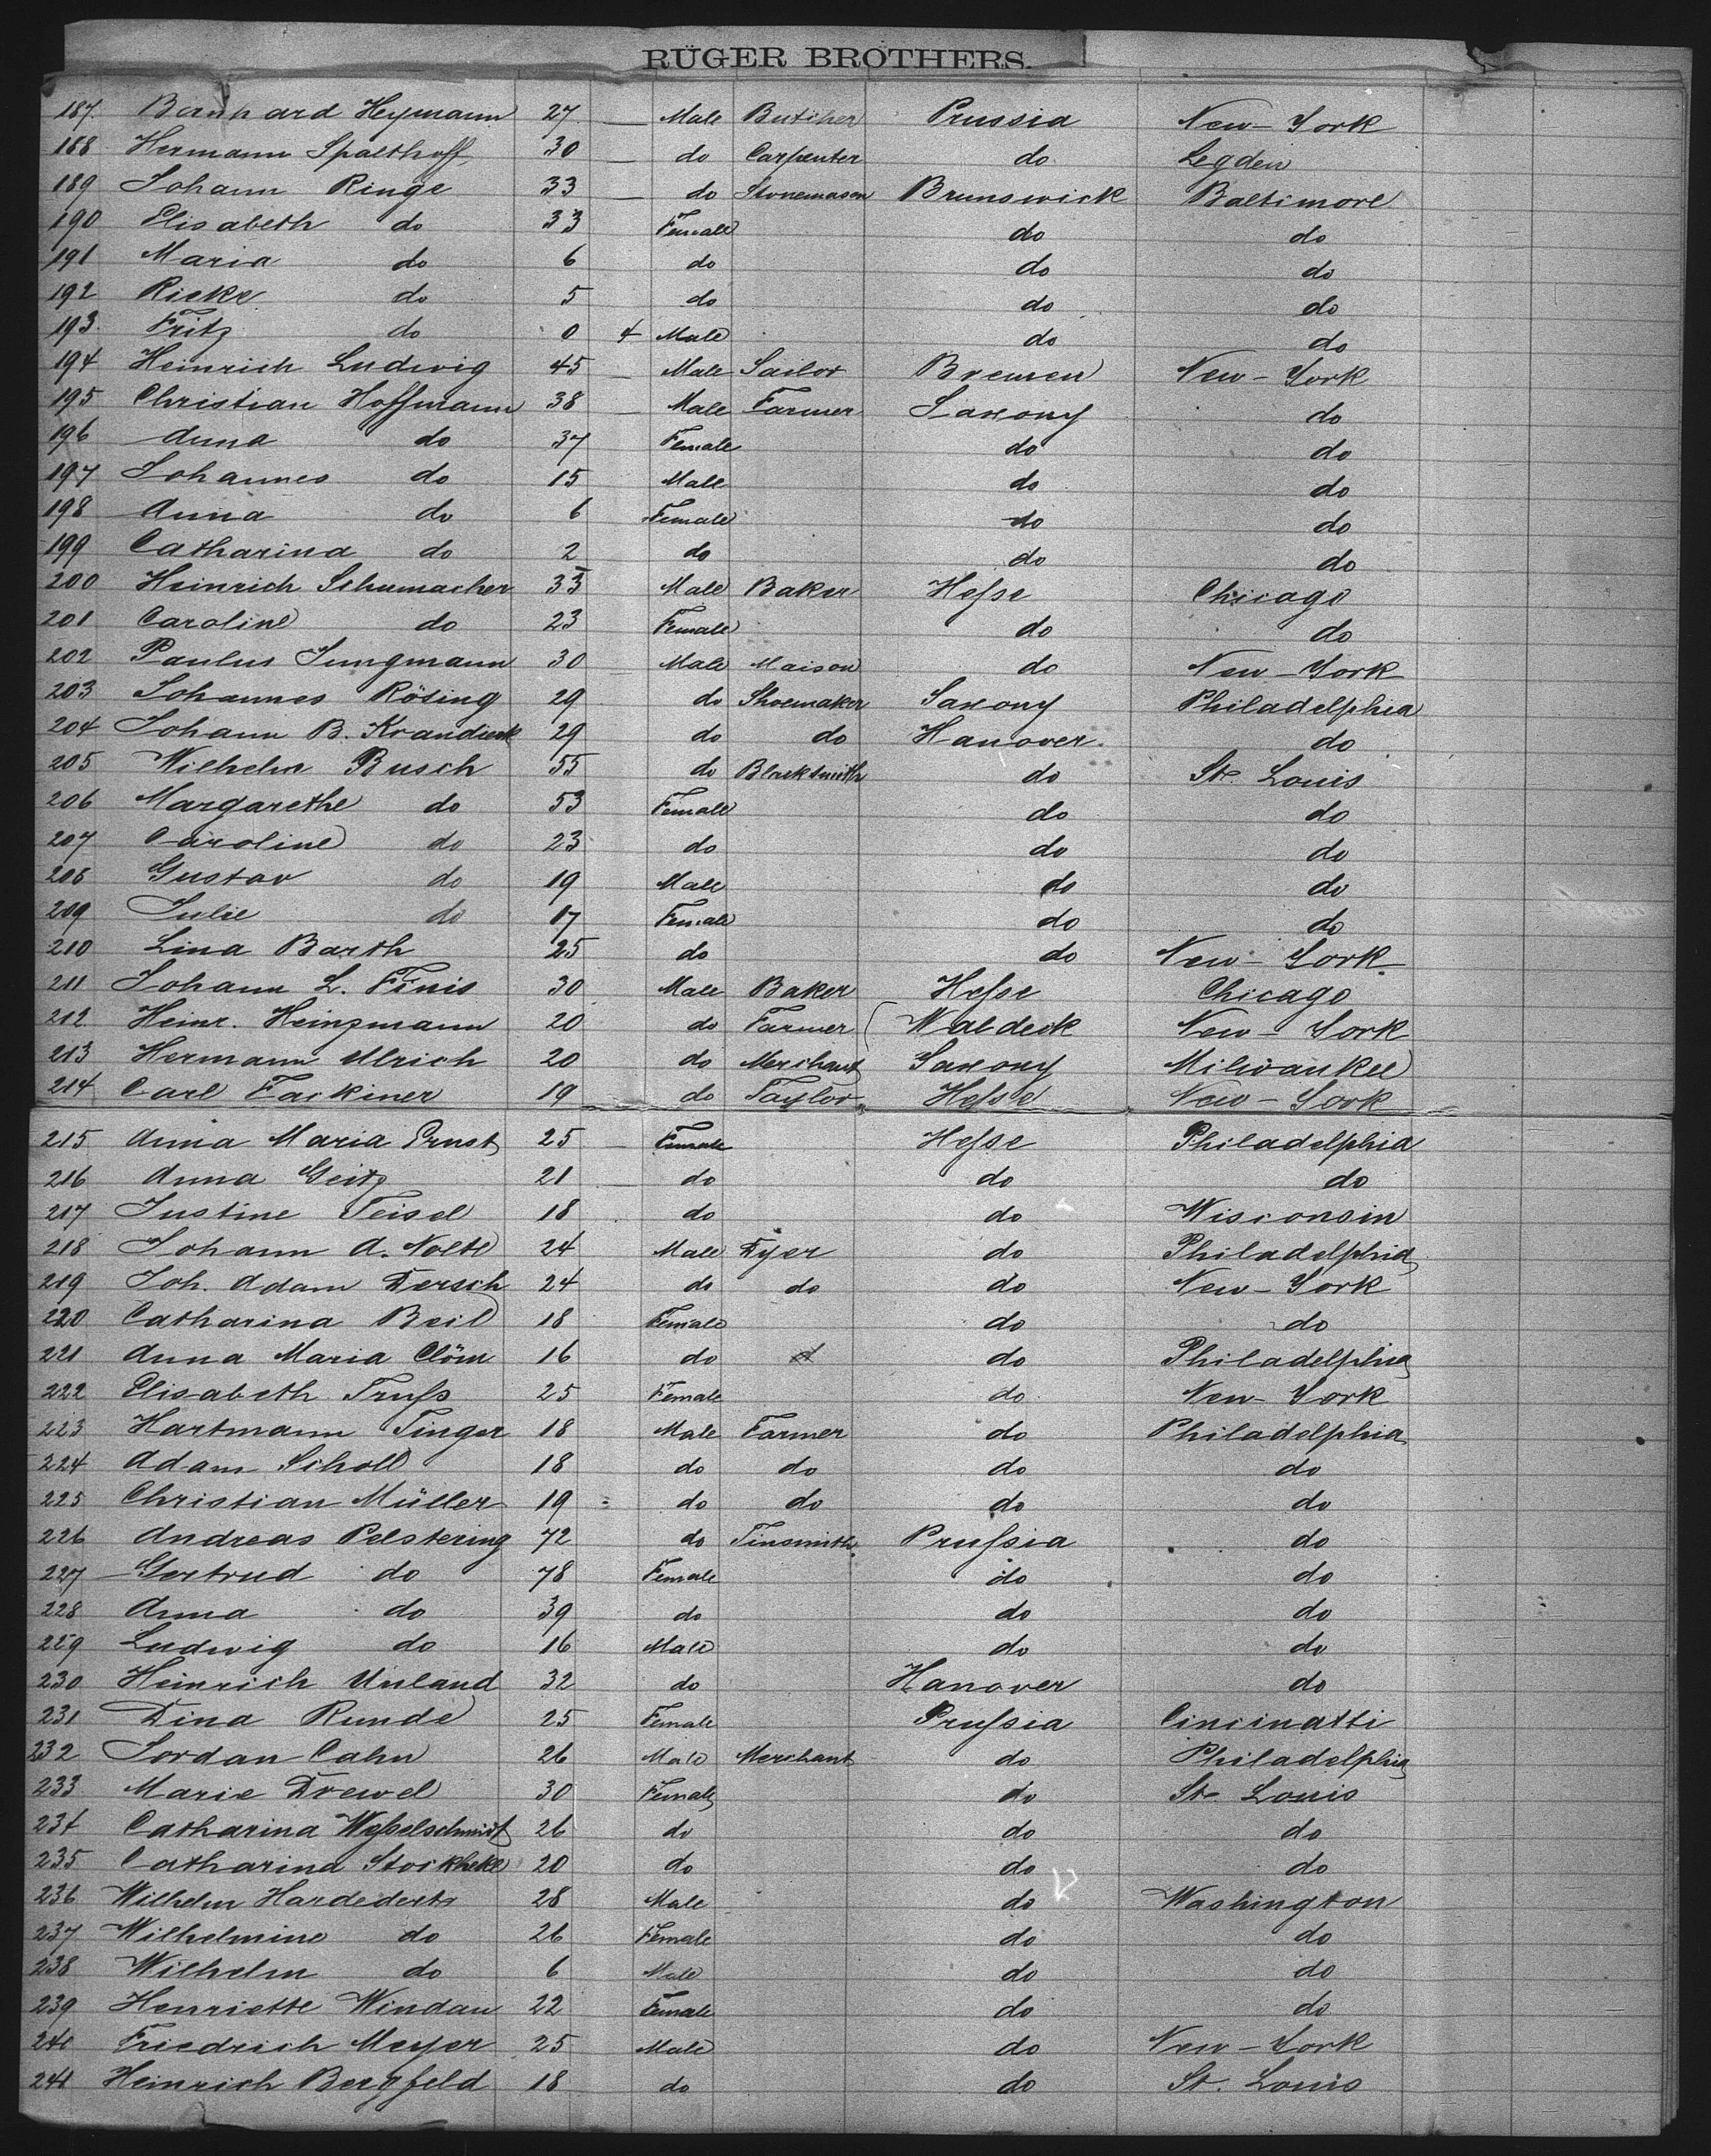 RÜGER BROTHERS.
187. Bernhard Heymann 27 — Male Butcher Prussia New-York
188 Hermann Spalthoff 30 — do Carpenter do Legden
189 Johann Ringe 33 — do Stonemason Brunswick Baltimore
190 Elisabeth do 33 Female do do
191 Maria do 6 do do do
192 Rieke do 5 do do do
193. Fritz do 0 4 Male do do
194 Heinrich Ludwig 45 — Male Sailor Bremen New-York
195 Christian Hoffmann 38 — Male Farmer Saxony do
196 Anna do 37 Female do do
197 Johannes do 15 Male do do
198 Anna do 6 Female do do
199 Catharina do 2 do do do
200 Heinrich Schumacher 33 Male Baker Hesse Chicago
201 Caroline do 23 Female do do
202 Paulus Jungmann 30 Male Maison do New-York
203 Johannes Rösing 29 do Shoemaker Saxony Philadelphia
204 Johann B. 29 do do Hanover. do
205 Wilhelm Busch 55 do Blacksmith do St. Louis
206 Margarethe do 53 Female do do
207 Caroline do 23 do do do
208 Gustav do 19 Male do do
209 Julie do 17 Female do do
210 Lina Barth 25 do do New-York
211 Johann L. Finis 30 Male Baker Hesse Chicago
212. Heinr. Heinzmann 20 do Farmer Waldeck New-York
213 Hermann Ulrich 20 do Merchant Saxony Milwaukee
214 Carl Fackiner 19 do Taylor Hesse New-York
215 Anna Maria Ernst 25 — Female Hesse Philadelphia
216 Anna Geitz 21 — do do do
217 Justine Teisel 18 do do Wisconsin
218 Johann A. Nolte 24 Male Dyer do Philadelphia
219 Joh. Adam Dersch 24 do do do New-York
220 Catharina Beil 18 Female do do
221 Anna Maria Clöm 16 do do Philadelphia
222 Elisabeth Truss 25 Female do New-York
223 Hartmann Tinger 18 Male Farmer do Philadelphia
224 Adam Scholl 18 do do do do
225 Christian Müller 19 do do do do
226 Andreas Pelstering 72 do Tinsmith. Prussia do
227 Gertrud do 78 Female do do
228 Anna do 39 do do do
229 Ludwig do 16 Male do do
230 Heinrich 32 do Hanover do
231 Dina Runde 25 Female Prussia Cincinatti
232 Jordan Cahn 26 Male Merchant do Philadelphia
233 Marie Drewel 30 Female do St. Louis
234 Catharina Wesselschmidt 26 do do do
235 Catharina 20 do do do
236 Wilhelm 28 Male do Washington
237 Wilhelmine do 26 Female do do
238 Wilhelm do 6 Male do do
239 Henriette Windau 22 Female do do
240 Friedrich Meyer 25 Male do New-York
241 Heinrich Bergfeld 18 do do St. Louis